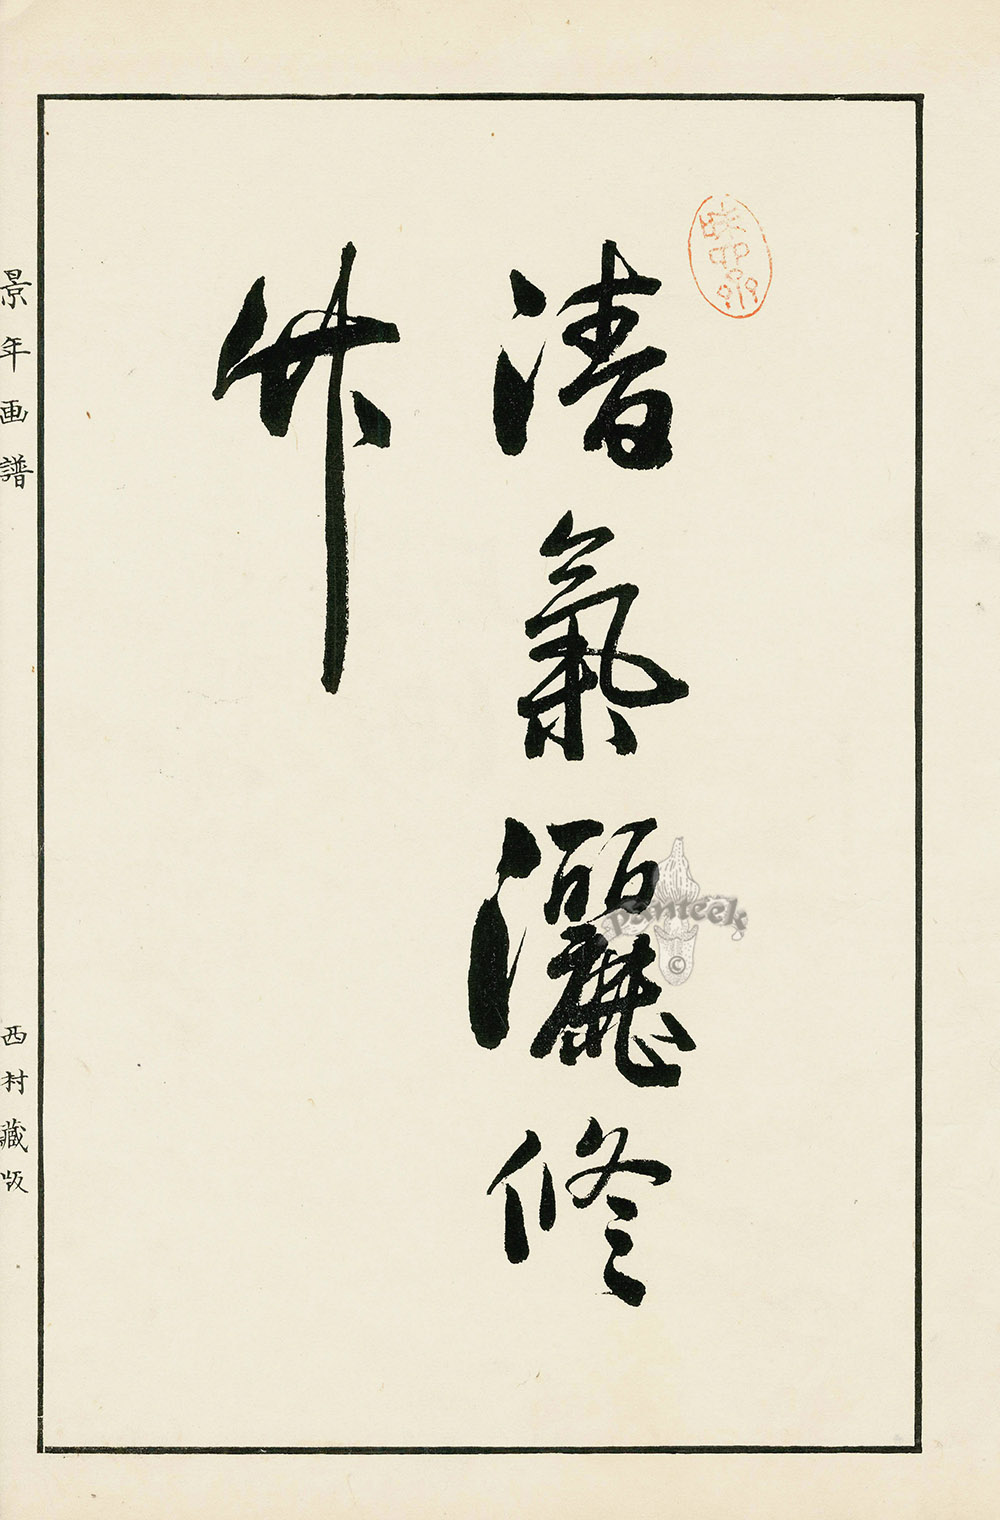 清氣灑修
竹
景年画譜
西村藏版
panteek
©